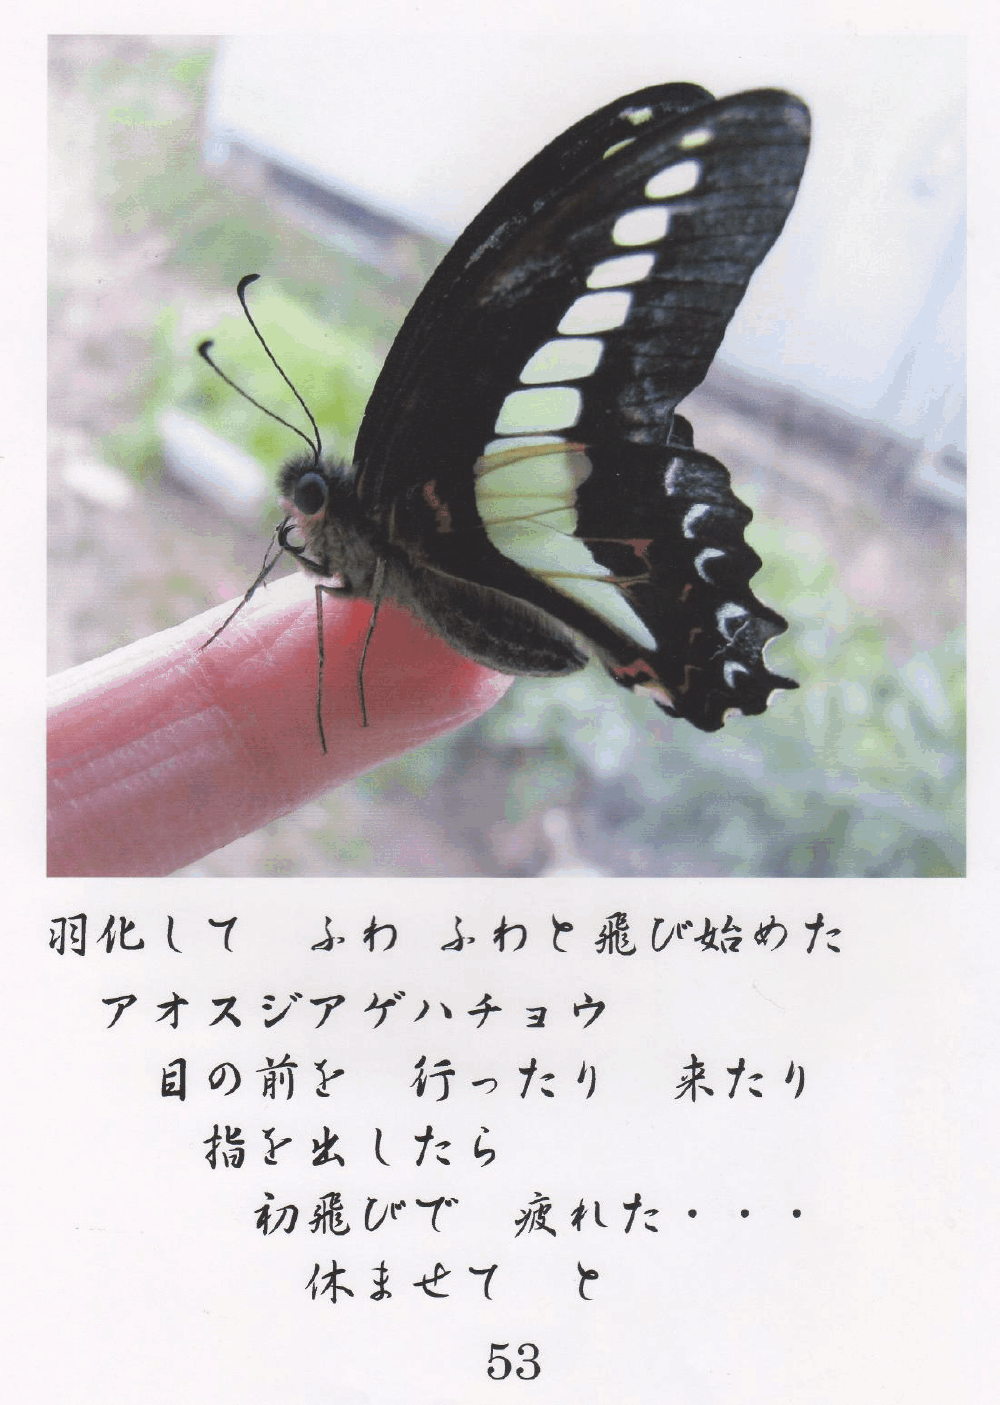 羽化して　ふわ ふわと飛び始めた
アオスジアゲハチョウ
目の前を　行ったり　来たり
指を出したら
初飛びで　疲れた・・・
休ませて　と
53